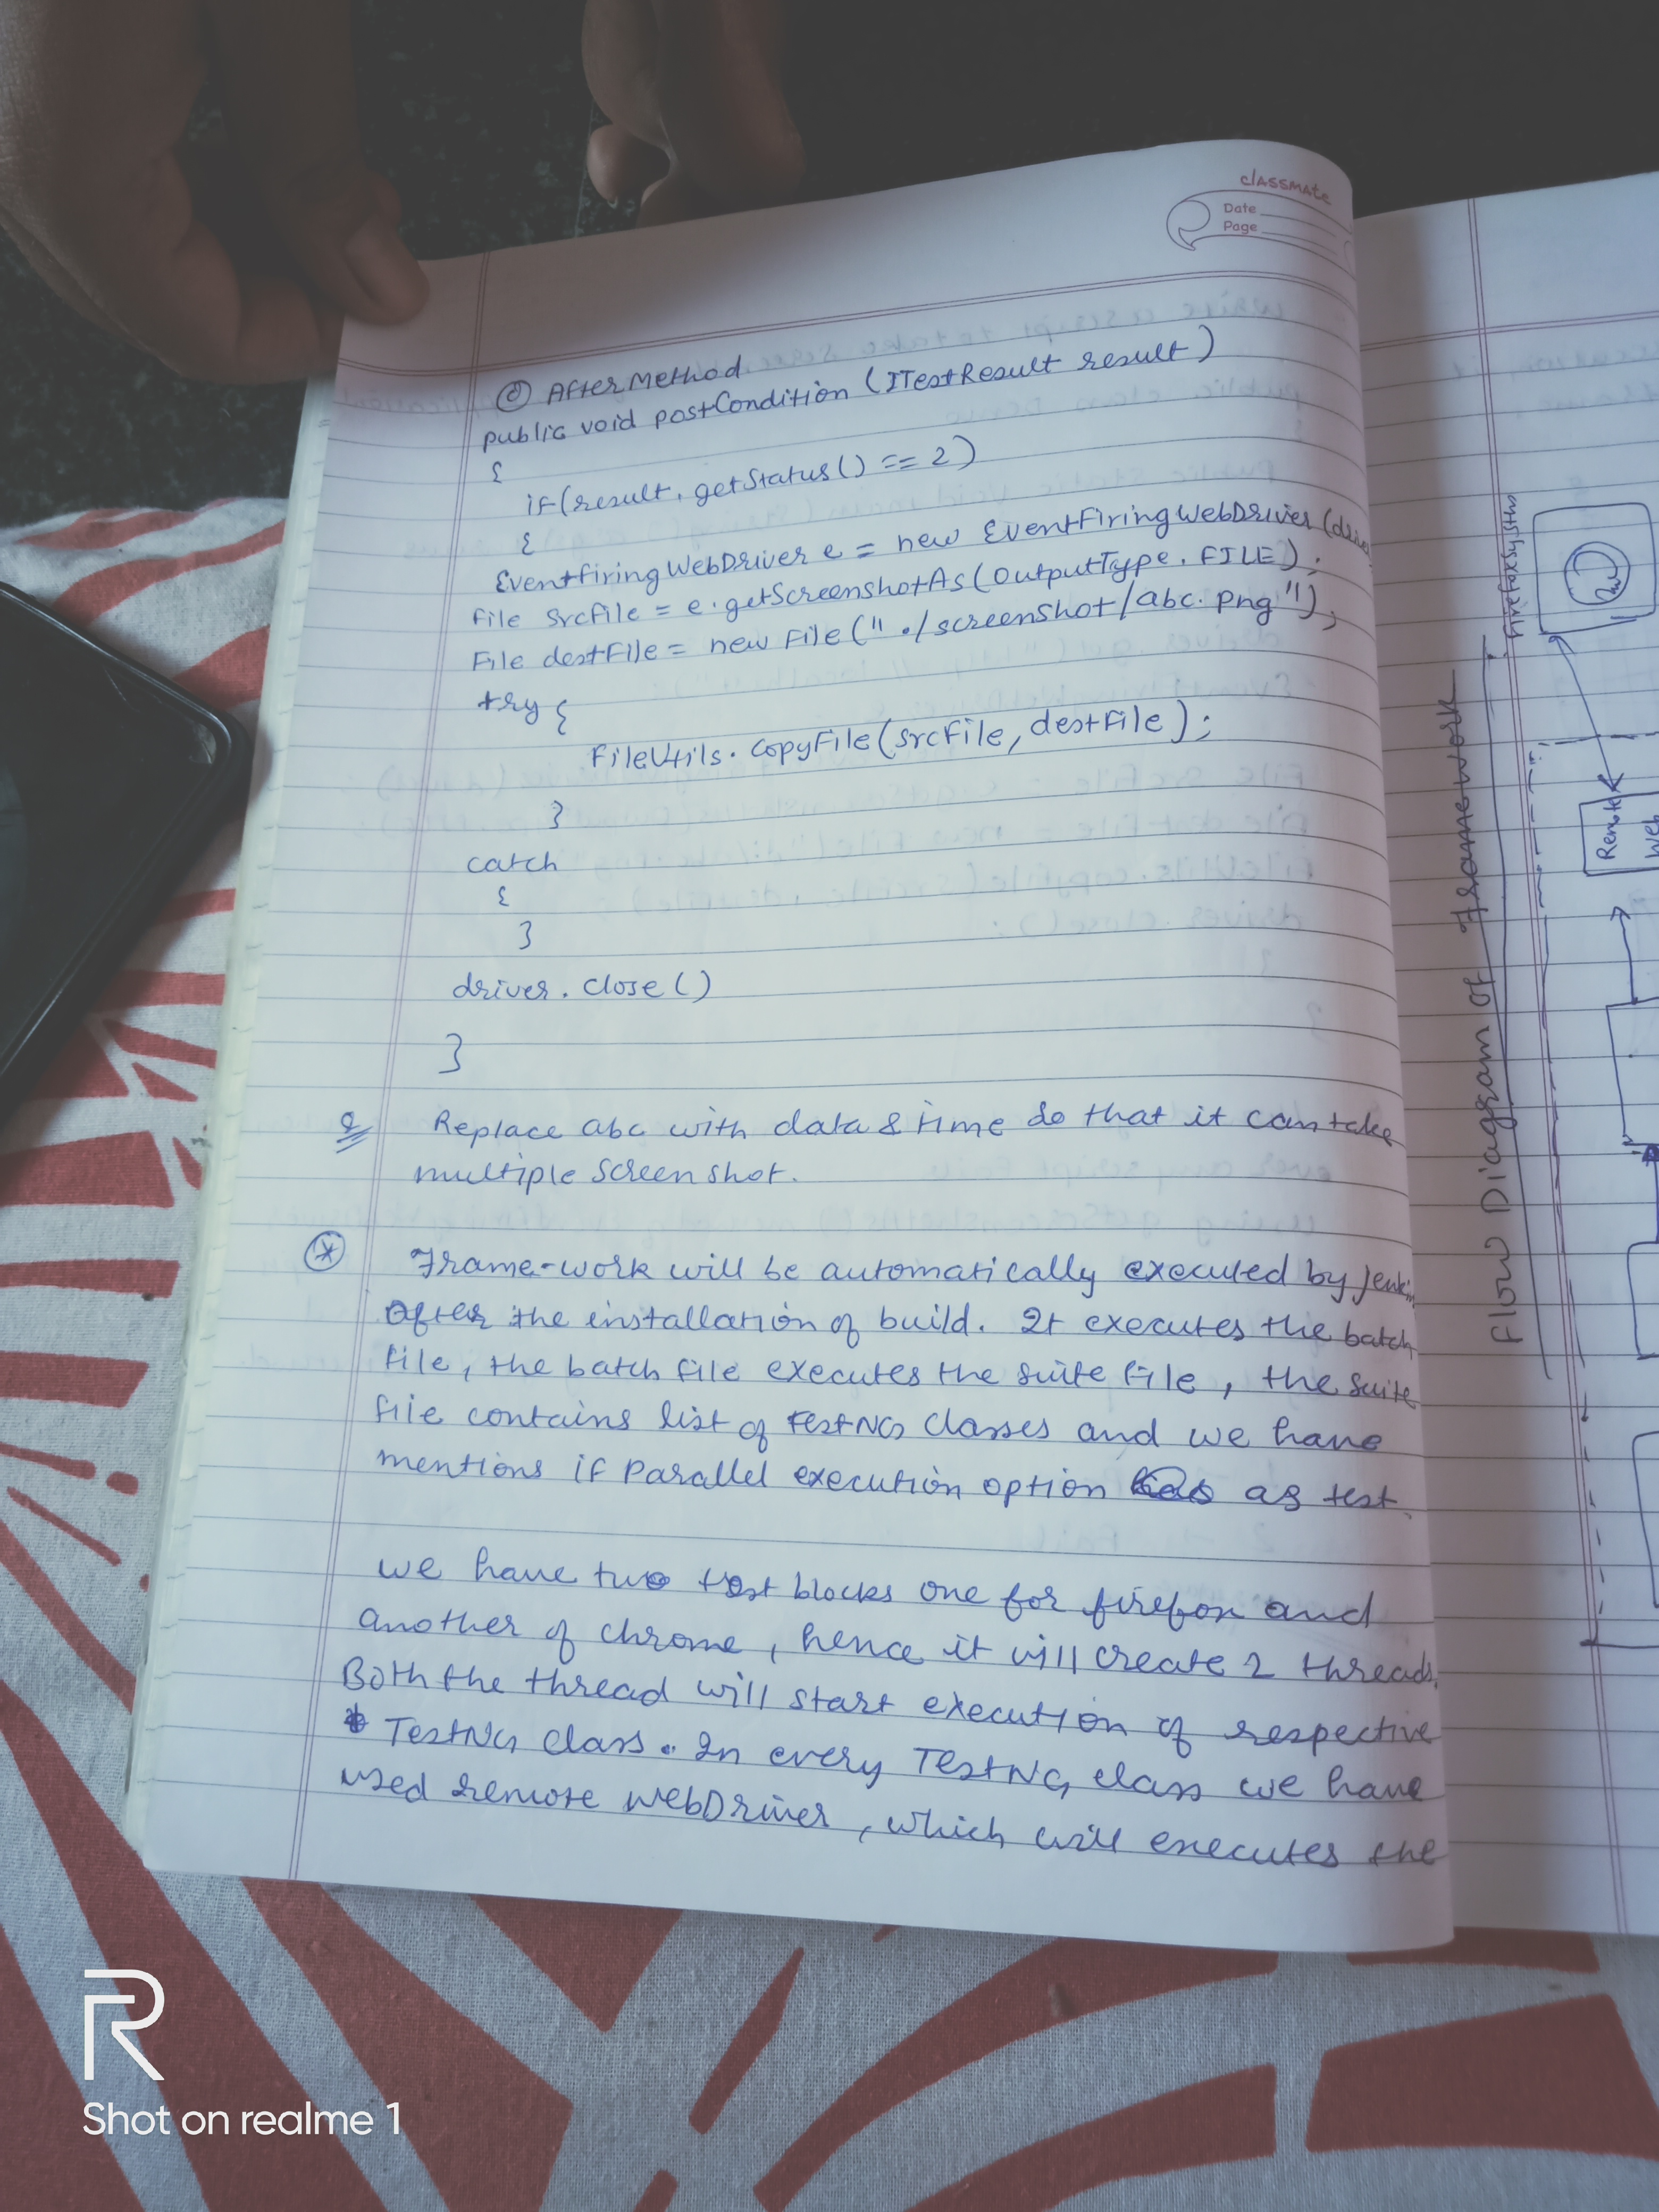 classmate
Date
Page
@ AfterMethod
public void postCondition (ITestResult result)
{
if(result. getStatus() == 2)
{
EventfiringWebDriver e = new EventFiringWebDriver (
File srcFile = e.getScreenshotAs(OutputType.FILE);
File destFile = new File("./screenshot/abc.png");
try {
FileUtils.copyFile(srcFile, destFile);
}
catch
{
}
driver. close()
}
Q Replace abc with data & time so that it can take
multiple screen shot.
* Frame-work will be automatically executed by Jenkin
after the installation of build. It executes the batch
file, the batch file executes the suite file, the suite
file contains list of TestNG classes and we have
mentions if Parallel execution option as test.
we have two test blocks one for firefox and
another of chrome, hence it will create 2 threads.
Both the thread will start execution of respective
TestNG class. In every TestNG class we have
used remote WebDriver, which will executes the
Flow Diagram of Framework
Remote
Web
R
Shot on realme 1